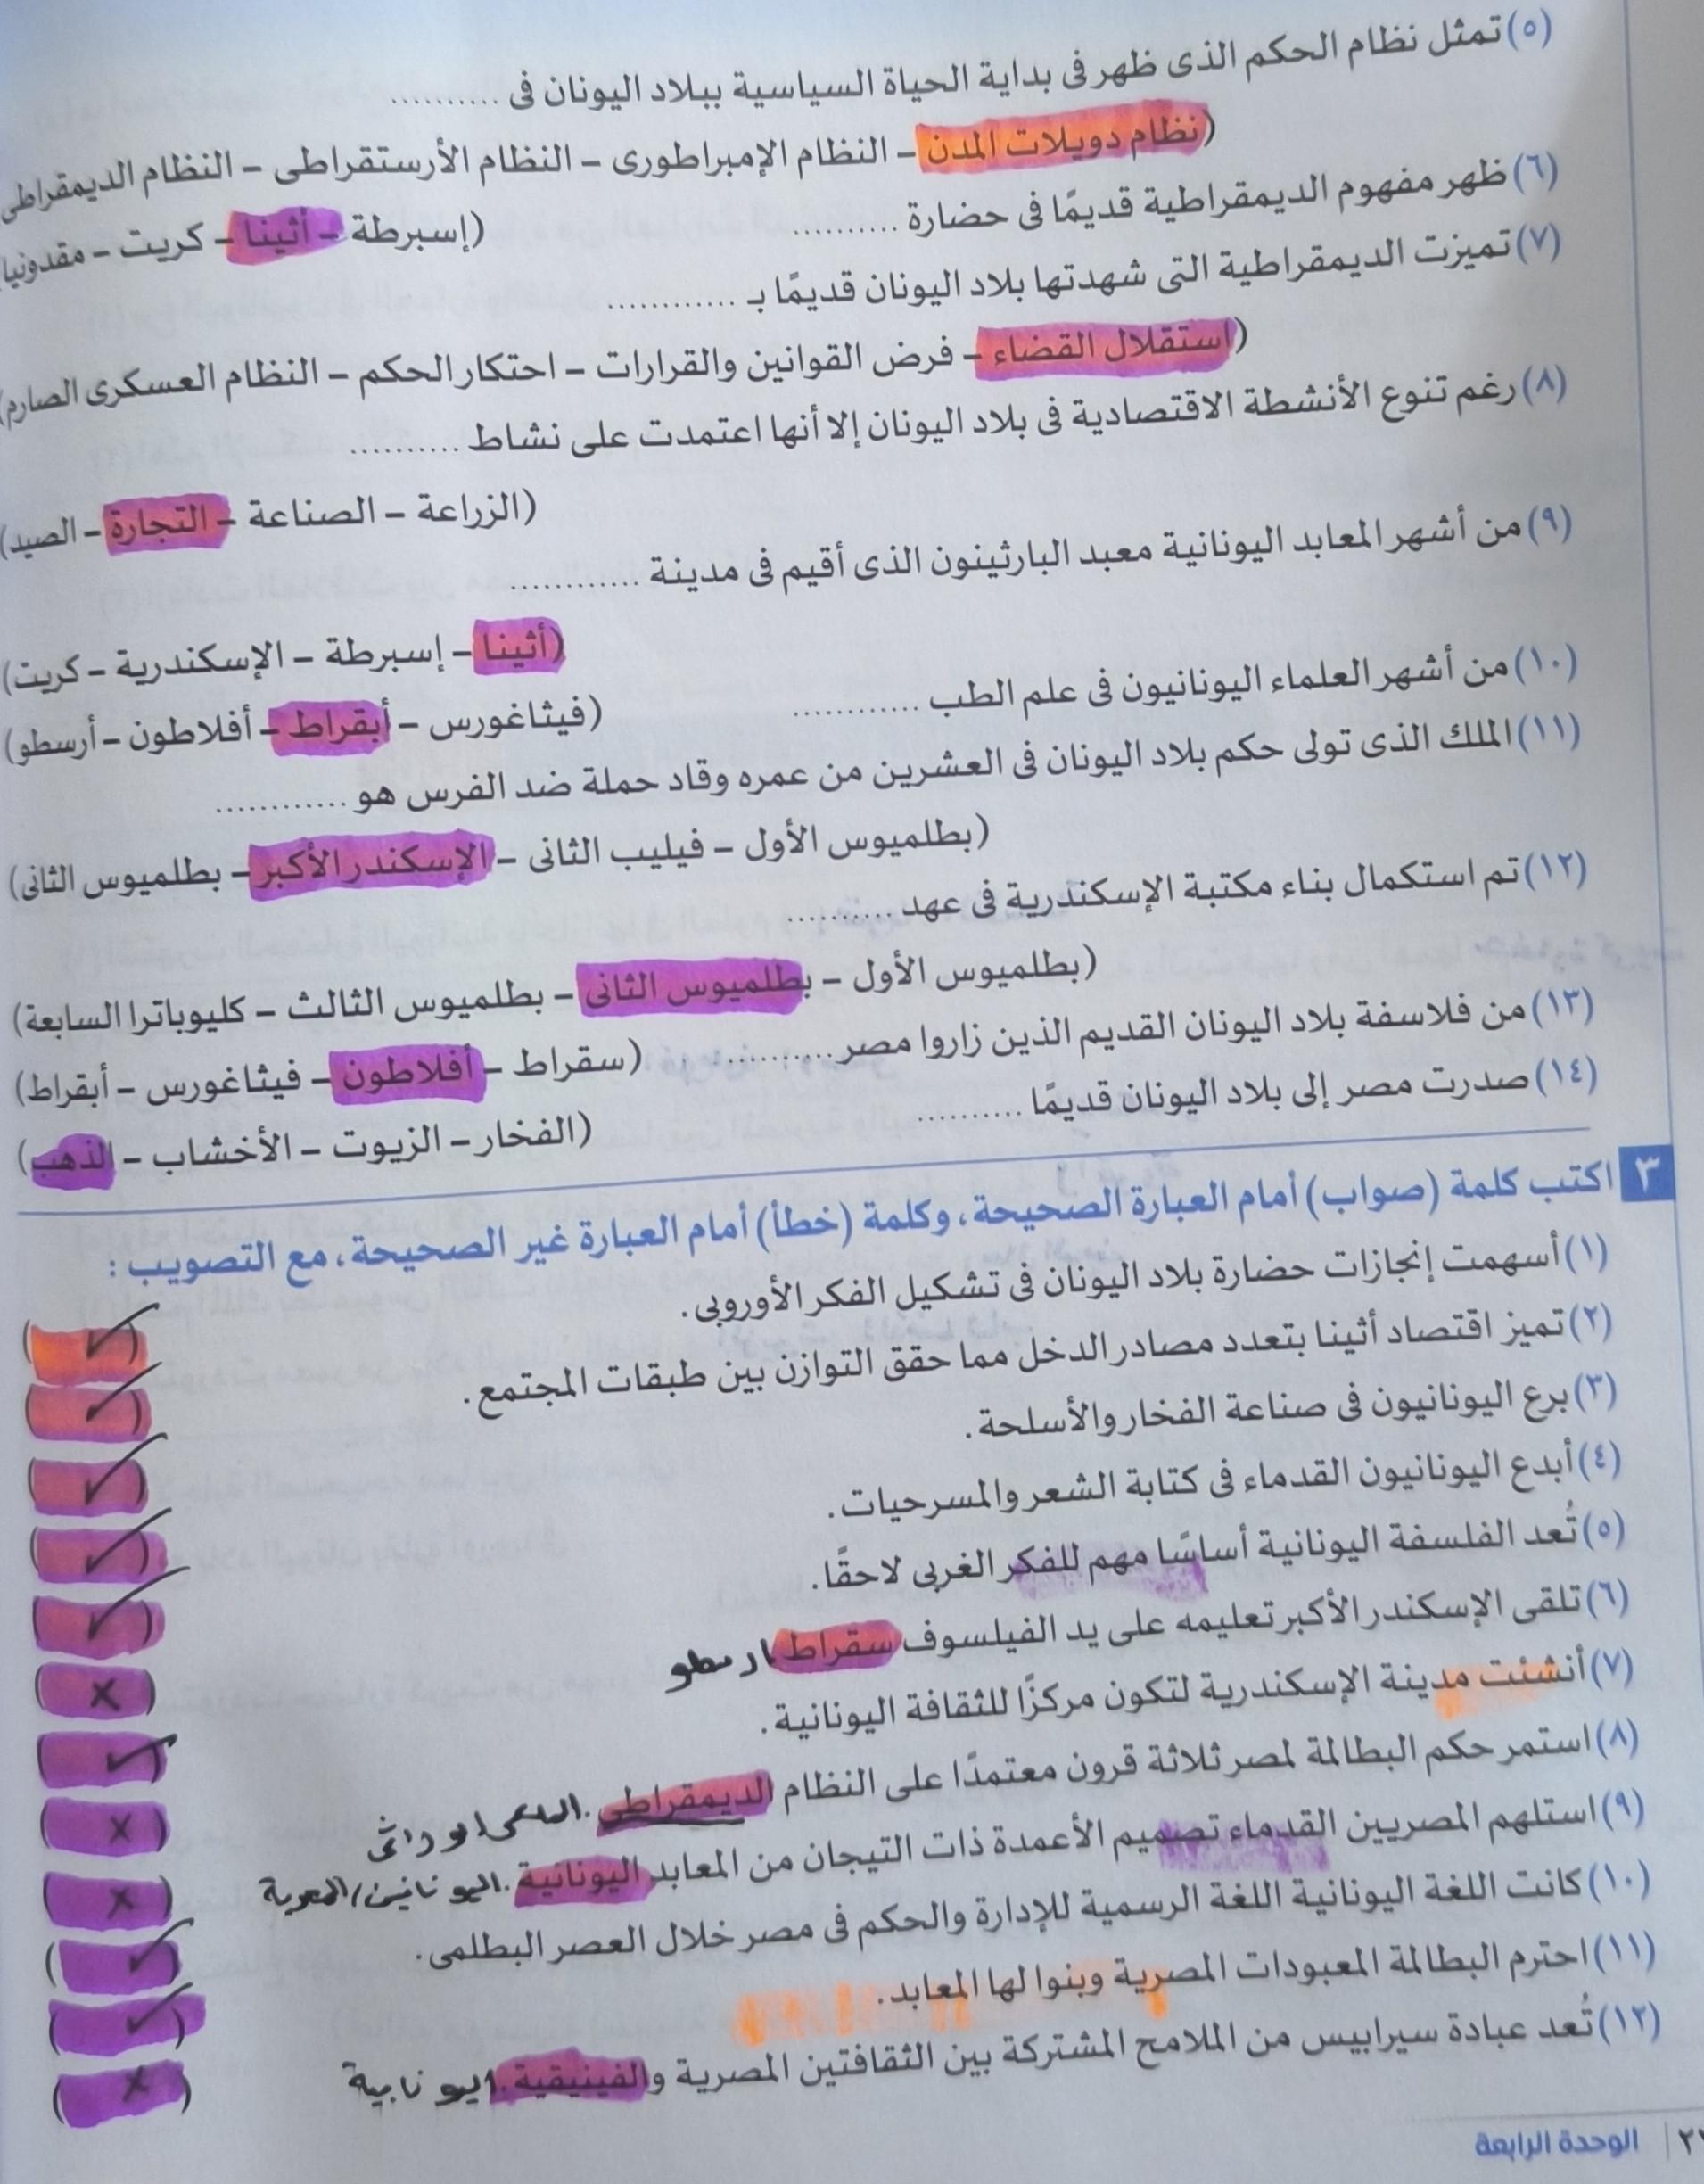 (٥) تمثل نظام الحكم الذى ظهر فى بداية الحياة السياسية ببلاد اليونان فى ..........
(نظام دويلات المدن – النظام الإمبراطورى – النظام الأرستقراطى – النظام الديمقراطى
(٦) ظهر مفهوم الديمقراطية قديمًا فى حضارة .......... (إسبرطة – أثينا – كريت – مقدونيا
(٧) تميزت الديمقراطية التى شهدتها بلاد اليونان قديمًا بـ ............
(استقلال القضاء – فرض القوانين والقرارات – احتكار الحكم – النظام العسكرى الصارم)
(٨) رغم تنوع الأنشطة الاقتصادية فى بلاد اليونان إلا أنها اعتمدت على نشاط ..........
(الزراعة – الصناعة – التجارة – الصيد)
(٩) من أشهر المعابد اليونانية معبد البارثينون الذى أقيم فى مدينة ............
(أثينا – إسبرطة – الإسكندرية – كريت)
(١٠) من أشهر العلماء اليونانيون فى علم الطب ............ (فيثاغورس – أبقراط – أفلاطون – أرسطو)
(١١) الملك الذى تولى حكم بلاد اليونان فى العشرين من عمره وقاد حملة ضد الفرس هو ............
(بطلميوس الأول – فيليب الثانى – الإسكندر الأكبر – بطلميوس الثانى)
(١٢) تم استكمال بناء مكتبة الإسكندرية فى عهد ..........
(بطلميوس الأول – بطلميوس الثانى – بطلميوس الثالث – كليوباترا السابعة)
(١٣) من فلاسفة بلاد اليونان القديم الذين زاروا مصر .......... (سقراط – أفلاطون – فيثاغورس – أبقراط)
(١٤) صدرت مصر إلى بلاد اليونان قديمًا .......... (الفخار – الزيوت – الأخشاب – الذهب)
٣ اكتب كلمة (صواب) أمام العبارة الصحيحة، وكلمة (خطأ) أمام العبارة غير الصحيحة، مع التصويب :
(١) أسهمت إنجازات حضارة بلاد اليونان فى تشكيل الفكر الأوروبى. (✓)
(٢) تميز اقتصاد أثينا بتعدد مصادر الدخل مما حقق التوازن بين طبقات المجتمع. (✓)
(٣) برع اليونانيون فى صناعة الفخار والأسلحة. (✓)
(٤) أبدع اليونانيون القدماء فى كتابة الشعر والمسرحيات. (✓)
(٥) تُعد الفلسفة اليونانية أساسًا مهم للفكر الغربى لاحقًا. (✓)
(٦) تلقى الإسكندر الأكبر تعليمه على يد الفيلسوف سقراط ارسطو (×)
(٧) أنشئت مدينة الإسكندرية لتكون مركزًا للثقافة اليونانية. (✓)
(٨) استمر حكم البطالمة لمصر ثلاثة قرون معتمدًا على النظام الديمقراطى. (×)
(٩) استلهم المصريين القدماء تصميم الأعمدة ذات التيجان من المعابد اليونانية. (×)
(١٠) كانت اللغة اليونانية اللغة الرسمية للإدارة والحكم فى مصر خلال العصر البطلمى. (✓)
(١١) احترم البطالمة المعبودات المصرية وبنوا لها المعابد. (✓)
(١٢) تُعد عبادة سيرابيس من الملامح المشتركة بين الثقافتين المصرية والفينيقية. (×)
الوحدة الرابعة